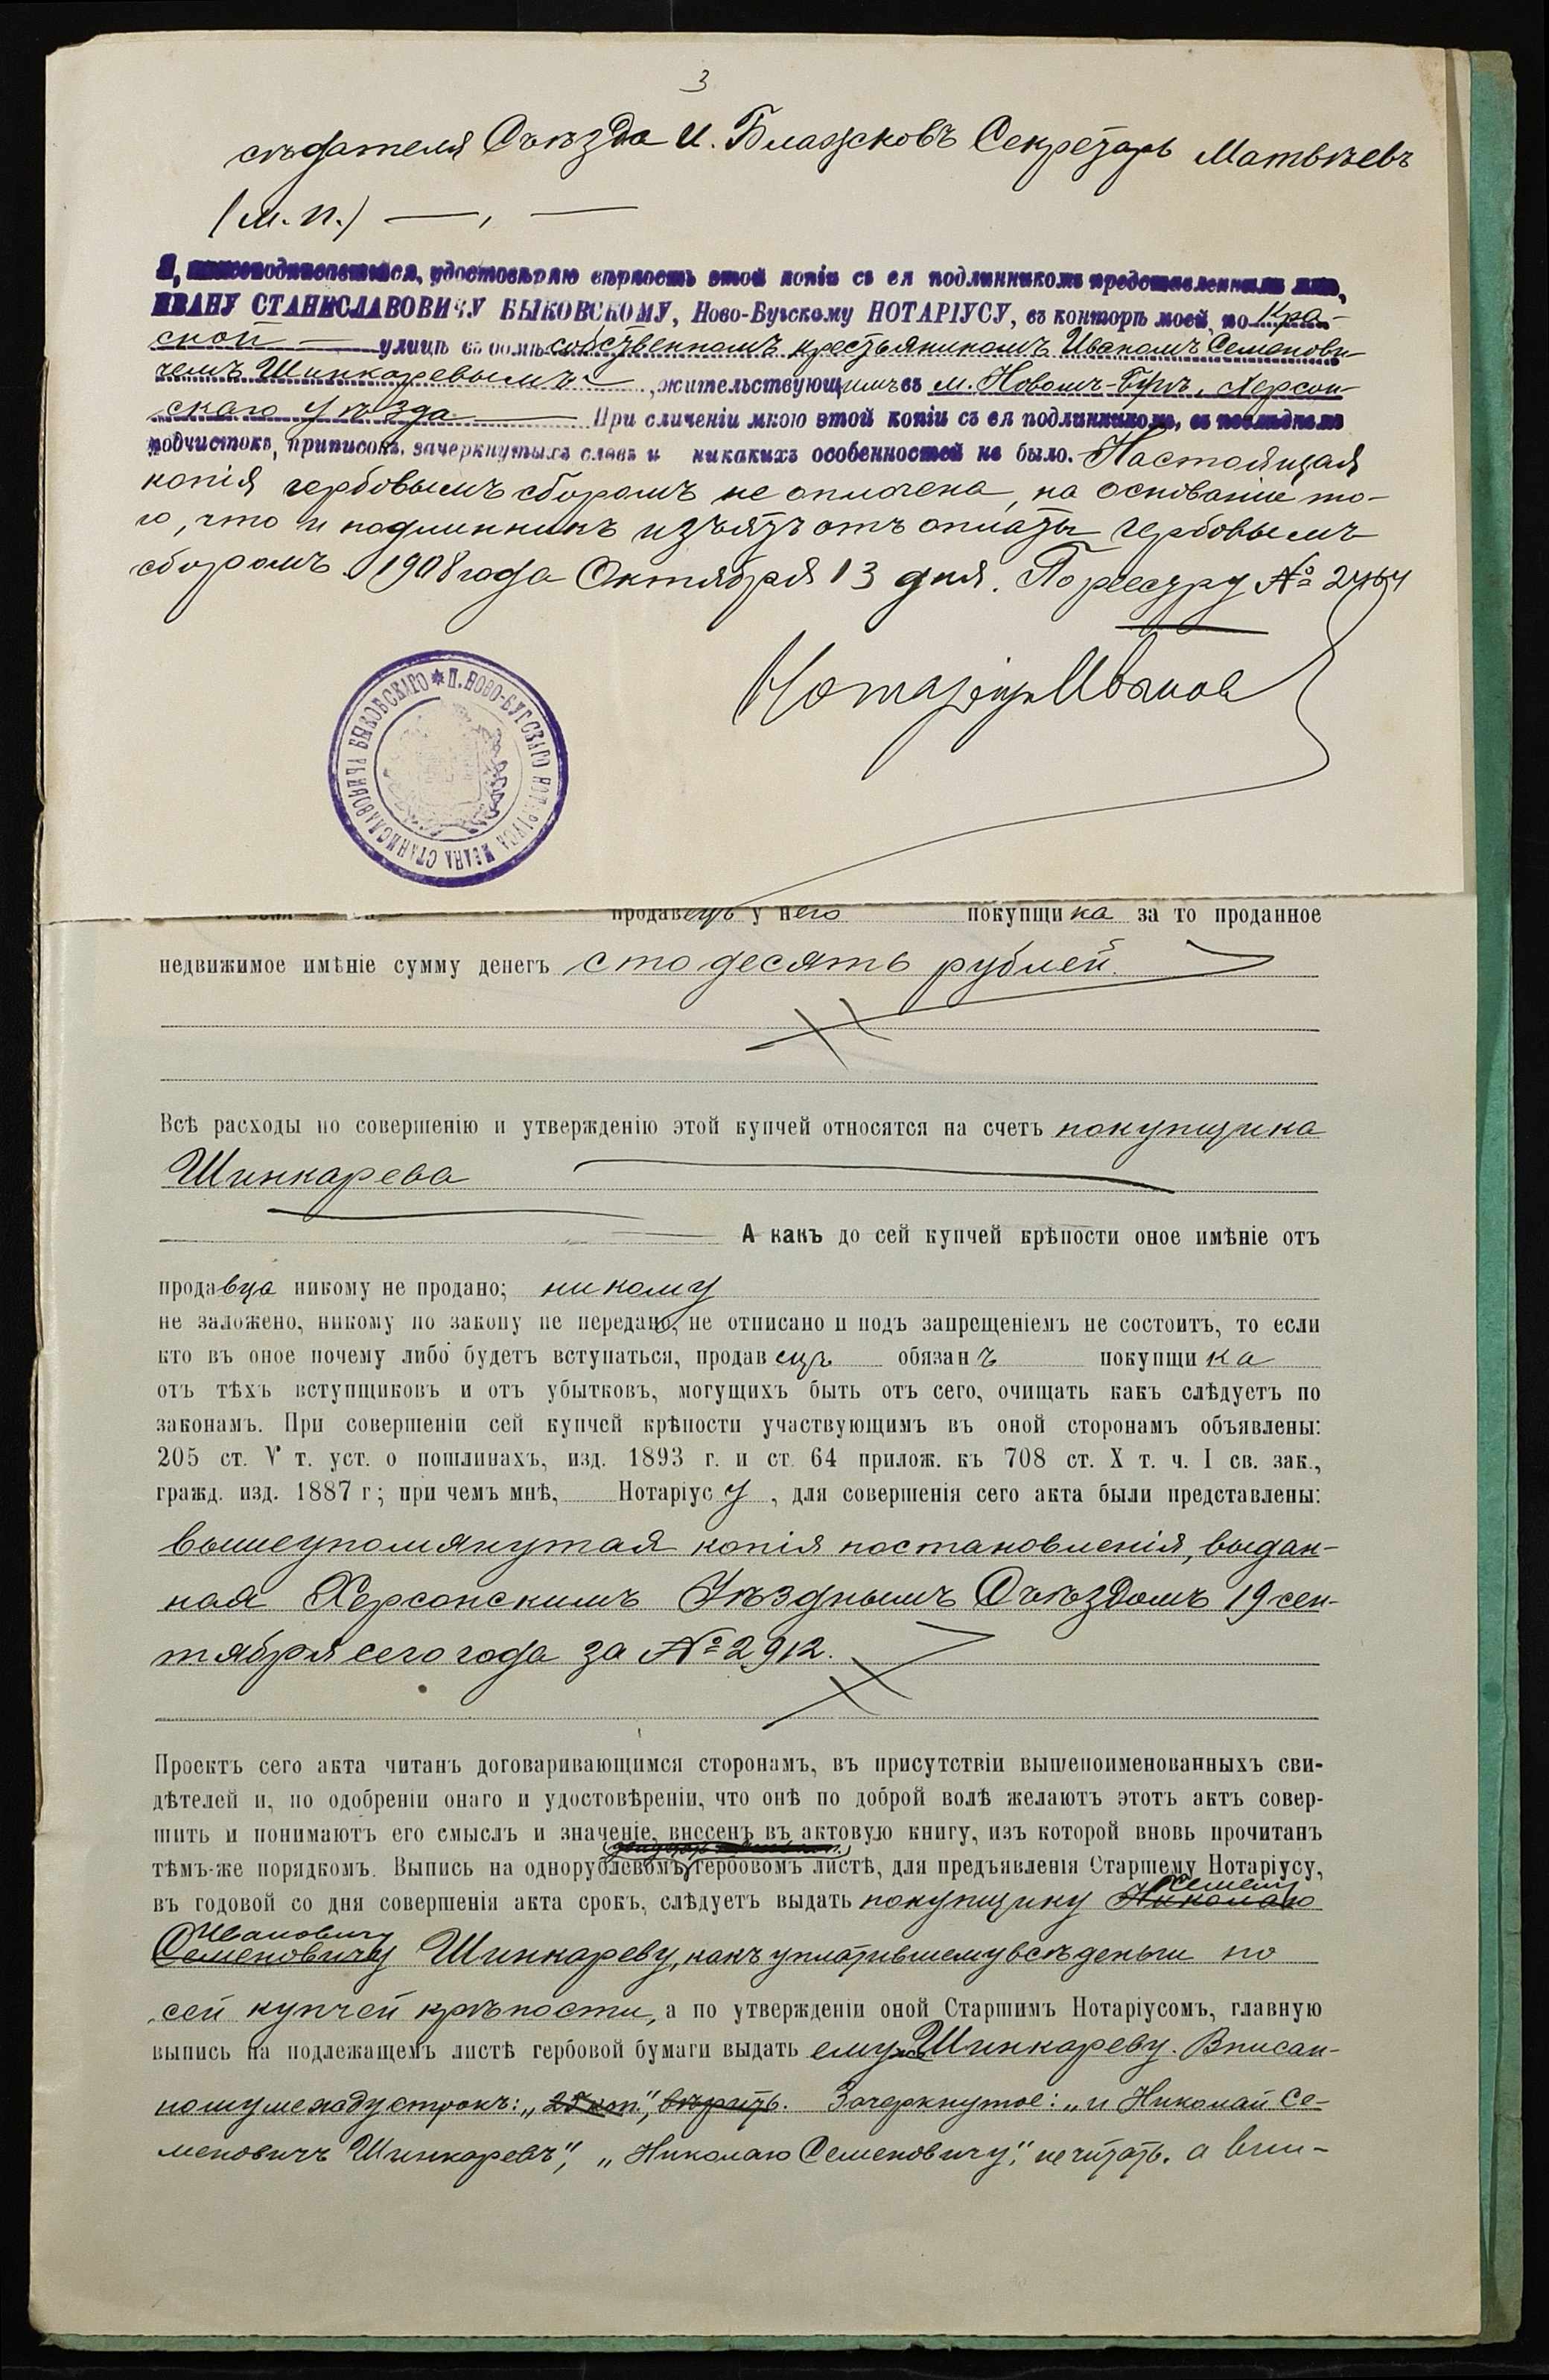 3
съдателя Съѣзда И. Блажковъ Секретарь Матвѣевъ
(М. п.) — , —
Я, нижеподписавшійся, удостовѣряю вѣрность этой копіи съ ея подлинникомъ представленнымъ мнѣ,
ИВАНУ СТАНИСЛАВОВИЧУ БЫКОВСКОМУ, Ново-Бугскому НОТАРІУСУ, въ конторѣ моей, по Кра-
ской — улицѣ въ домѣ собственномъ крестьяниномъ Иваномъ Семенови-
чемъ Шинкаревымъ, жительствующимъ въ м. Новомъ-Бугѣ, Херсон-
скаго уѣзда — При сличеніи мною этой копіи съ ея подлинникомъ, въ послѣднемъ
подчистокъ, приписокъ, зачеркнутыхъ словъ и никакихъ особенностей не было. Настоящая
копія гербовымъ сборомъ не оплачена, на основаніи то-
го, что и подлинникъ изъятъ отъ оплаты гербовымъ
сборомъ. 1908 года Октября 13 дня. По реестру № 2464
Нотаріусъ
П. НОВО-БУГСКАГО НОТАРІУСА ИВАНА СТАНИСЛАВОВИЧА БЫКОВСКАГО
продавецъ у него покупщика за то проданное
недвижимое имѣніе сумму денегъ сто десять рублей.
Всѣ расходы по совершенію и утвержденію этой купчей относятся на счетъ покупщика
Шинкарева
А какъ до сей купчей крѣпости оное имѣніе отъ
продавца никому не продано; никому
не заложено, никому по закону не передано, не отписано и подъ запрещеніемъ не состоитъ, то если
кто въ оное почему либо будетъ вступаться, продавецъ обязанъ покупщика
отъ тѣхъ вступщиковъ и отъ убытковъ, могущихъ быть отъ сего, очищать какъ слѣдуетъ по
законамъ. При совершеніи сей купчей крѣпости участвующимъ въ оной сторонамъ объявлены:
205 ст. V т. уст. о пошлинахъ, изд. 1893 г. и ст. 64 прилож. къ 708 ст. X т. ч. I св. зак.,
гражд. изд. 1887 г; при чемъ мнѣ, Нотаріусу, для совершенія сего акта были представлены:
вышеупомянутая копія постановленія, выдан-
ная Херсонскимъ Уѣзднымъ Съѣздомъ 19 сен-
тября сего года за № 2912.
Проектъ сего акта читанъ договаривающимся сторонамъ, въ присутствіи вышепоименованныхъ сви-
дѣтелей и, по одобреніи онаго и удостовѣреніи, что онѣ по доброй волѣ желаютъ этотъ актъ совер-
шить и понимаютъ его смыслъ и значеніе, внесенъ въ актовую книгу, изъ которой вновь прочитанъ
тѣмъ-же порядкомъ. Выпись на однорублевомъ гербовомъ листѣ, для предъявленія Старшему Нотаріусу,
въ годовой со дня совершенія акта срокъ, слѣдуетъ выдать покупщику Николаю Семену
Семеновичу Ивановичу Шинкареву, какъ уплатившему всѣ деньги по
сей купчей крѣпости, а по утвержденіи оной Старшимъ Нотаріусомъ, главную
выпись на подлежащемъ листѣ гербовой бумаги выдать ему Шинкареву. Вписан-
ному между строкъ: „25 коп.“, вѣрить. Зачеркнутое: „и Николай Се-
меновичъ Шинкаревъ“, „Николаю Семеновичу“, не читать. а впи-